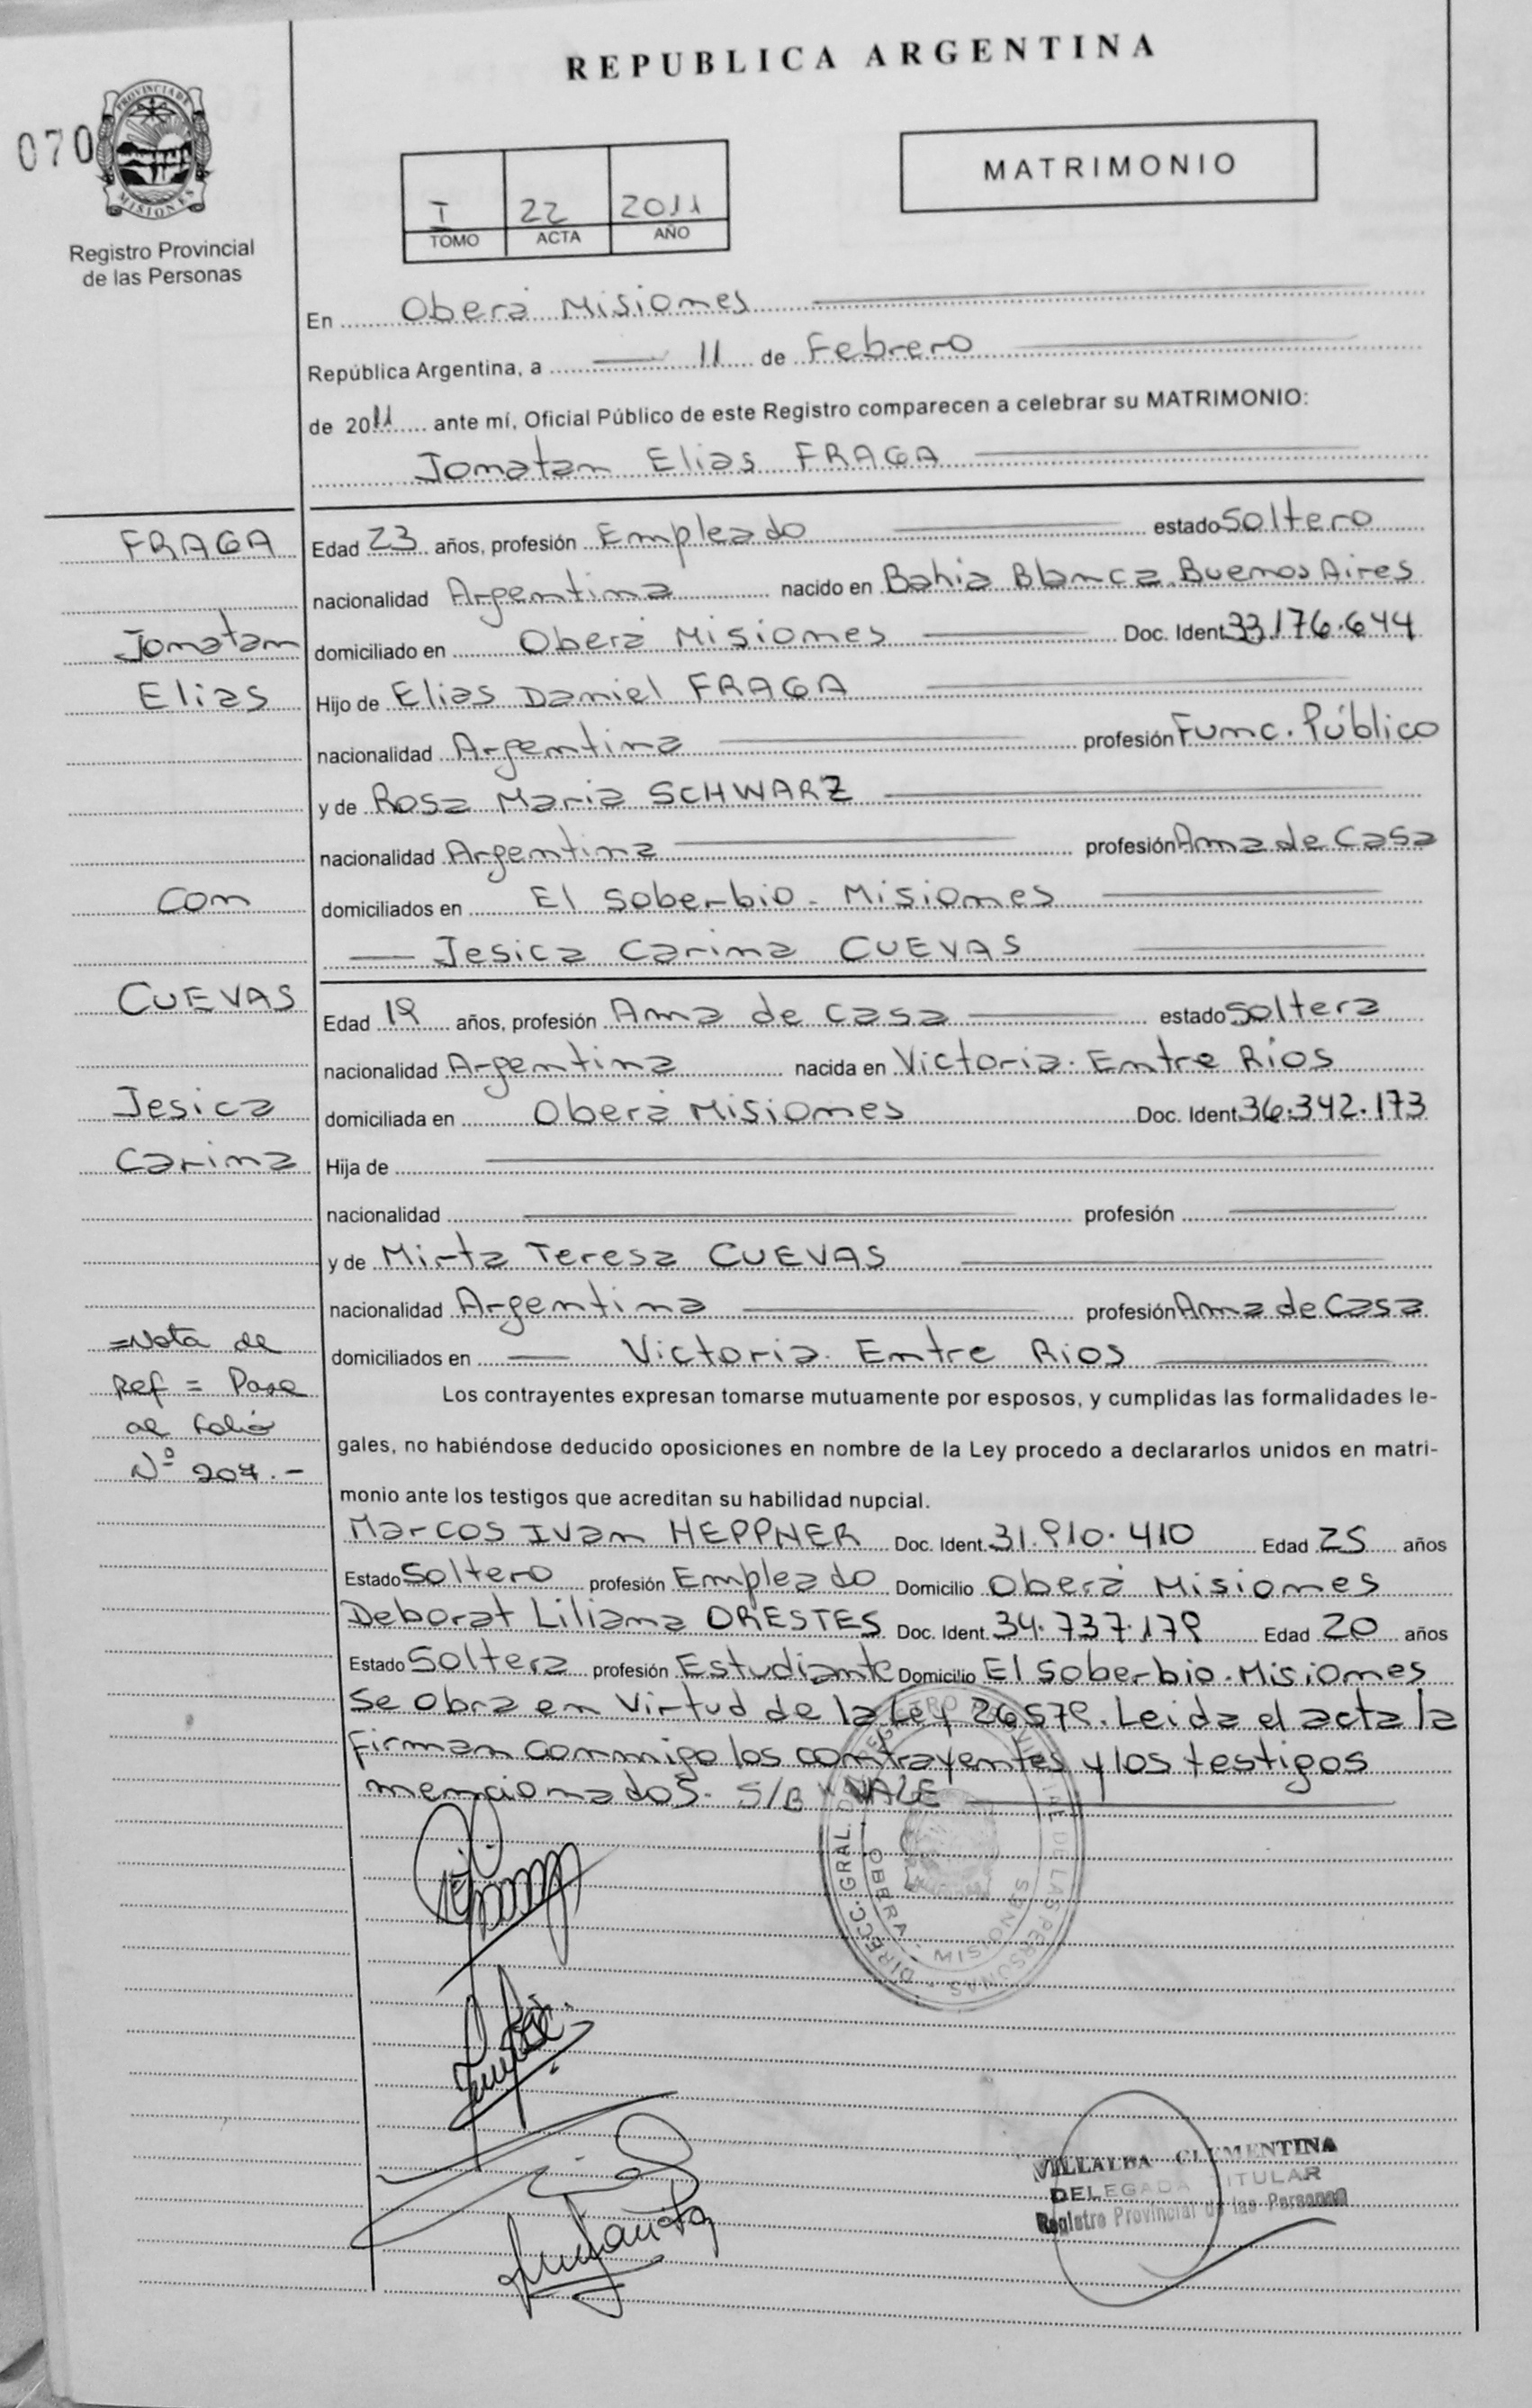 REPUBLICA ARGENTINA
070
PROVINCIA DE
MISIONES
Registro Provincial
de las Personas
I 22 2011
TOMO ACTA AÑO
MATRIMONIO
En Oberá Misiones
República Argentina, a 11 de Febrero
de 2011 ante mí, Oficial Público de este Registro comparecen a celebrar su MATRIMONIO:
Jonatan Elias FRAGA
FRAGA
Jonatan
Elias
con
CUEVAS
Jesica
Carina
=Nota de
Ref = Pase
al folio
Nº 204.-
Edad 23 años, profesión Empleado estado Soltero
nacionalidad Argentina nacido en Bahia Blanca. Buenos Aires
domiciliado en Oberá Misiones Doc. Ident. 33.176.644
Hijo de Elias Daniel FRAGA
nacionalidad Argentina profesión Func. Público
y de Rosa Maria SCHWARZ
nacionalidad Argentina profesión Ama de Casa
domiciliados en El Soberbio - Misiones
Jesica Carina CUEVAS
Edad 19 años, profesión Ama de Casa estado Soltera
nacionalidad Argentina nacida en Victoria. Entre Rios
domiciliada en Oberá Misiones Doc. Ident. 36.342.173
Hija de
nacionalidad profesión
y de Mirta Teresa CUEVAS
nacionalidad Argentina profesión Ama de Casa
domiciliados en Victoria. Entre Rios
Los contrayentes expresan tomarse mutuamente por esposos, y cumplidas las formalidades le-
gales, no habiéndose deducido oposiciones en nombre de la Ley procedo a declararlos unidos en matri-
monio ante los testigos que acreditan su habilidad nupcial.
Marcos Ivan HEPPNER Doc. Ident. 31.910.410 Edad 25 años
Estado Soltero profesión Empleado Domicilio Oberá Misiones
Deborat Liliana ORESTES Doc. Ident. 34.737.179 Edad 20 años
Estado Soltera profesión Estudiante Domicilio El Soberbio. Misiones
Se obra en Virtud de la Ley 26579. Leida el acta la
firman conmigo los contrayentes y los testigos
mencionados. S/B VALE
DIRECC. GRAL. DEL REGISTRO PROVINCIAL DE LAS PERSONAS
OBERA - MISIONES
VILLALBA CLEMENTINA
DELEGADA TITULAR
Registro Provincial de las Personas